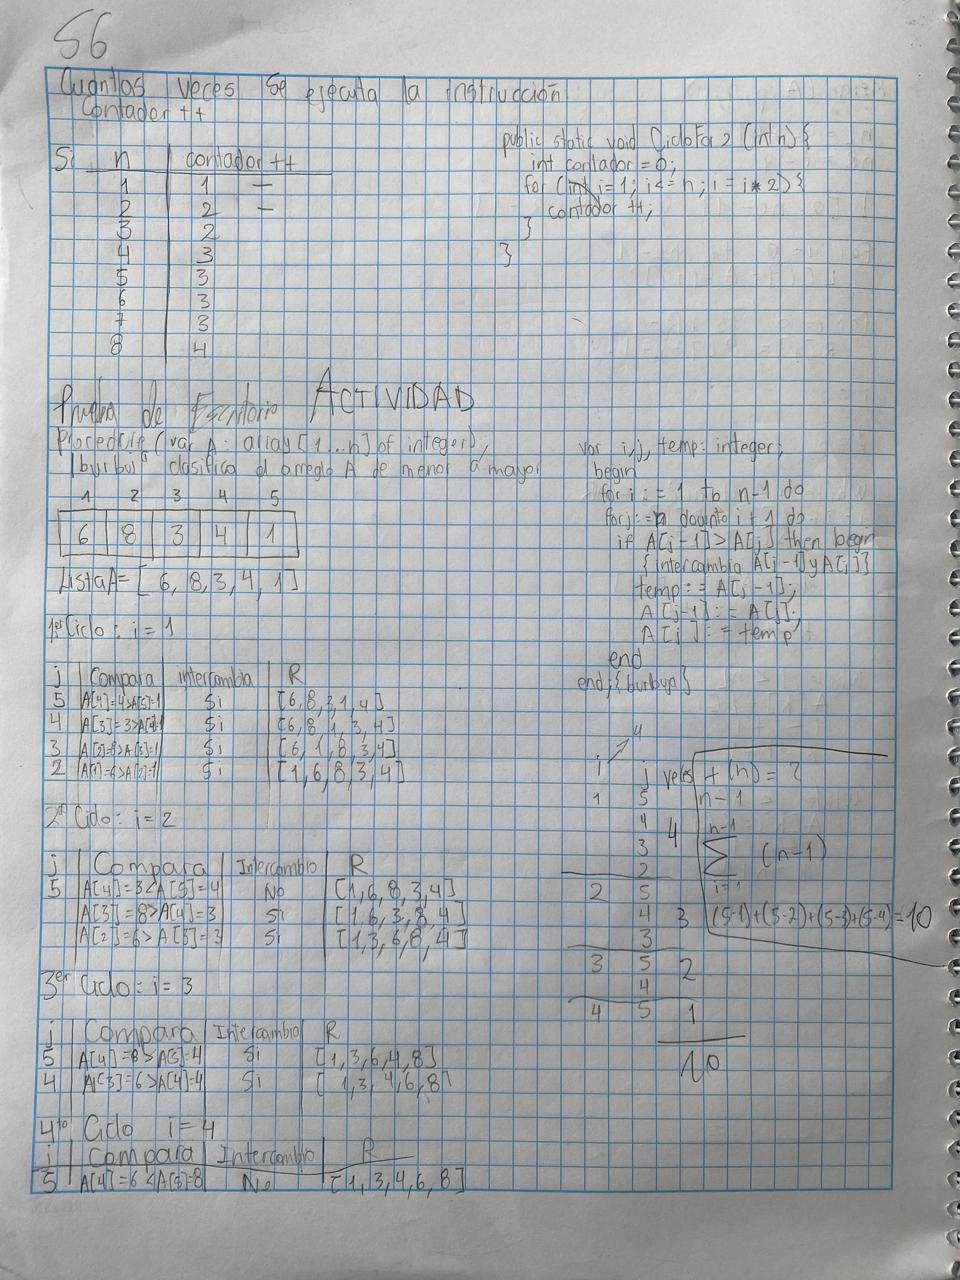 S6
Cuantas veces se ejecuta la instrucción
Contador ++
public static void CicloFor2 (int n) {
int contador = 0;
for (int i=1; i<=n; i = i*2){
contador ++;
}
}
Si n contador ++
1 1 —
2 2 —
3 2
4 3
5 3
6 3
7 3
8 4
Prueba de Escritorio ACTIVIDAD
(var A: array [1...n] of integer),
clasifica el arreglo A de menor a mayor
1 2 3 4 5
6 8 3 4 1
ListaA=[6,8,3,4,1]
var i,j, temp: integer;
begin
for i := 1 to n-1 do
for j := n downto i + 1 do
if A[j-1]>A[j] then begin
{intercambia A[j-1] y A[j]}
temp := A[j-1];
A[j-1] := A[j];
A[j] := temp
end
end; {burbuja}
1er Ciclo: i = 1
j Compara intercambia R
5 A[4]=4>A[5]=1 Si [6,8,3,1,4]
4 A[3]=3>A[4]=1 Si [6,8,1,3,4]
3 A[2]=8>A[3]=1 Si [6,1,8,3,4]
2 A[1]=6>A[2]=1 Si [1,6,8,3,4]
2do Ciclo: i = 2
j Compara Intercambio R
5 A[4]=3<A[5]=4 No [1,6,8,3,4]
A[3]=8>A[4]=3 Si [1,6,3,8,4]
A[2]=6>A[3]=3 Si [1,3,6,8,4]
3er Ciclo: i = 3
j Compara Intercambio R
5 A[4]=8>A[5]=4 Si [1,3,6,4,8]
4 A[3]=6>A[4]=4 Si [1,3,4,6,8]
4to Ciclo i = 4
j Compara Intercambio R
5 A[4]=6<A[5]=8 No [1,3,4,6,8]
4
i j veces
1 5
4
3 4
2
2 5
4 3
3
3 5 2
4
4 5 1
10
t(n) = ?
n-1
n-1
∑ (n-1)
i=1
(5-1)+(5-2)+(5-3)+(5-4)=10